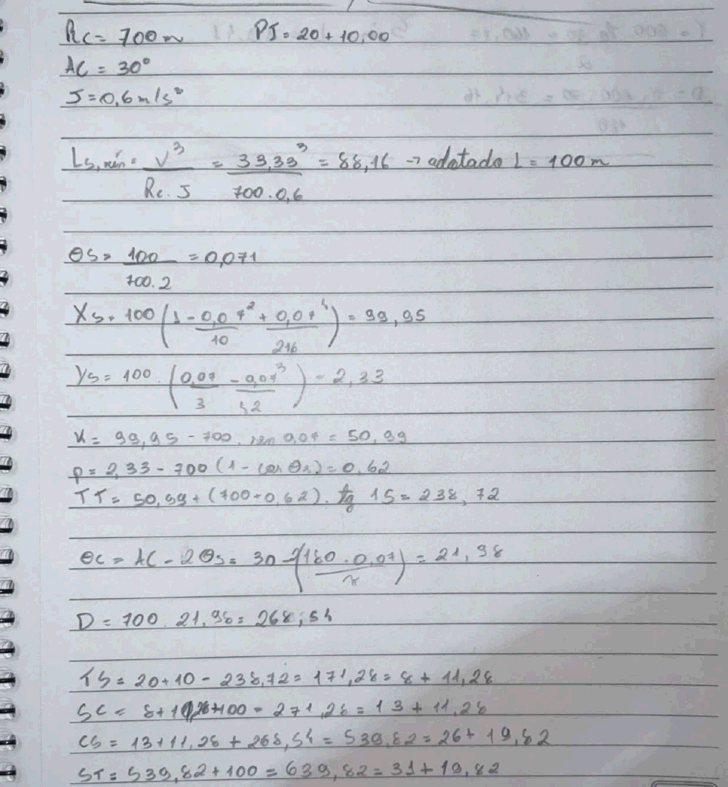 Rc = 700m PI = 20+10,00
AC = 30°
J = 0,6m/s³
Ls,mín = V³ / Rc.J = 33,33³ / 700.0,6 = 88,16 → adotado L = 100m
θs = 100 / 700.2 = 0,071
Xs = 100 (1 - 0,07² / 10 + 0,07⁴ / 216) = 99,95
Ys = 100 . (0,07 / 3 - 0,07³ / 42) = 2,33
K = 99,95 - 700. sen 0,07 = 50,99
p = 2,33 - 700 (1 - cos θs) = 0,62
TT = 50,99 + (700+0,62). tg 15 = 238,72
θc = AC - 2θs = 30 - 2(180.0,07 / π) = 21,98
D = 700 21,98 = 268,54
TS = 20+10 - 238,72 = 171,28 = 8 + 11,28
SC = 8+11,28+100 = 271,28 = 13 + 11,28
CS = 13+11,28 + 268,54 = 539,82 = 26 + 19,82
ST = 539,82 + 100 = 639,82 = 31 + 19,82